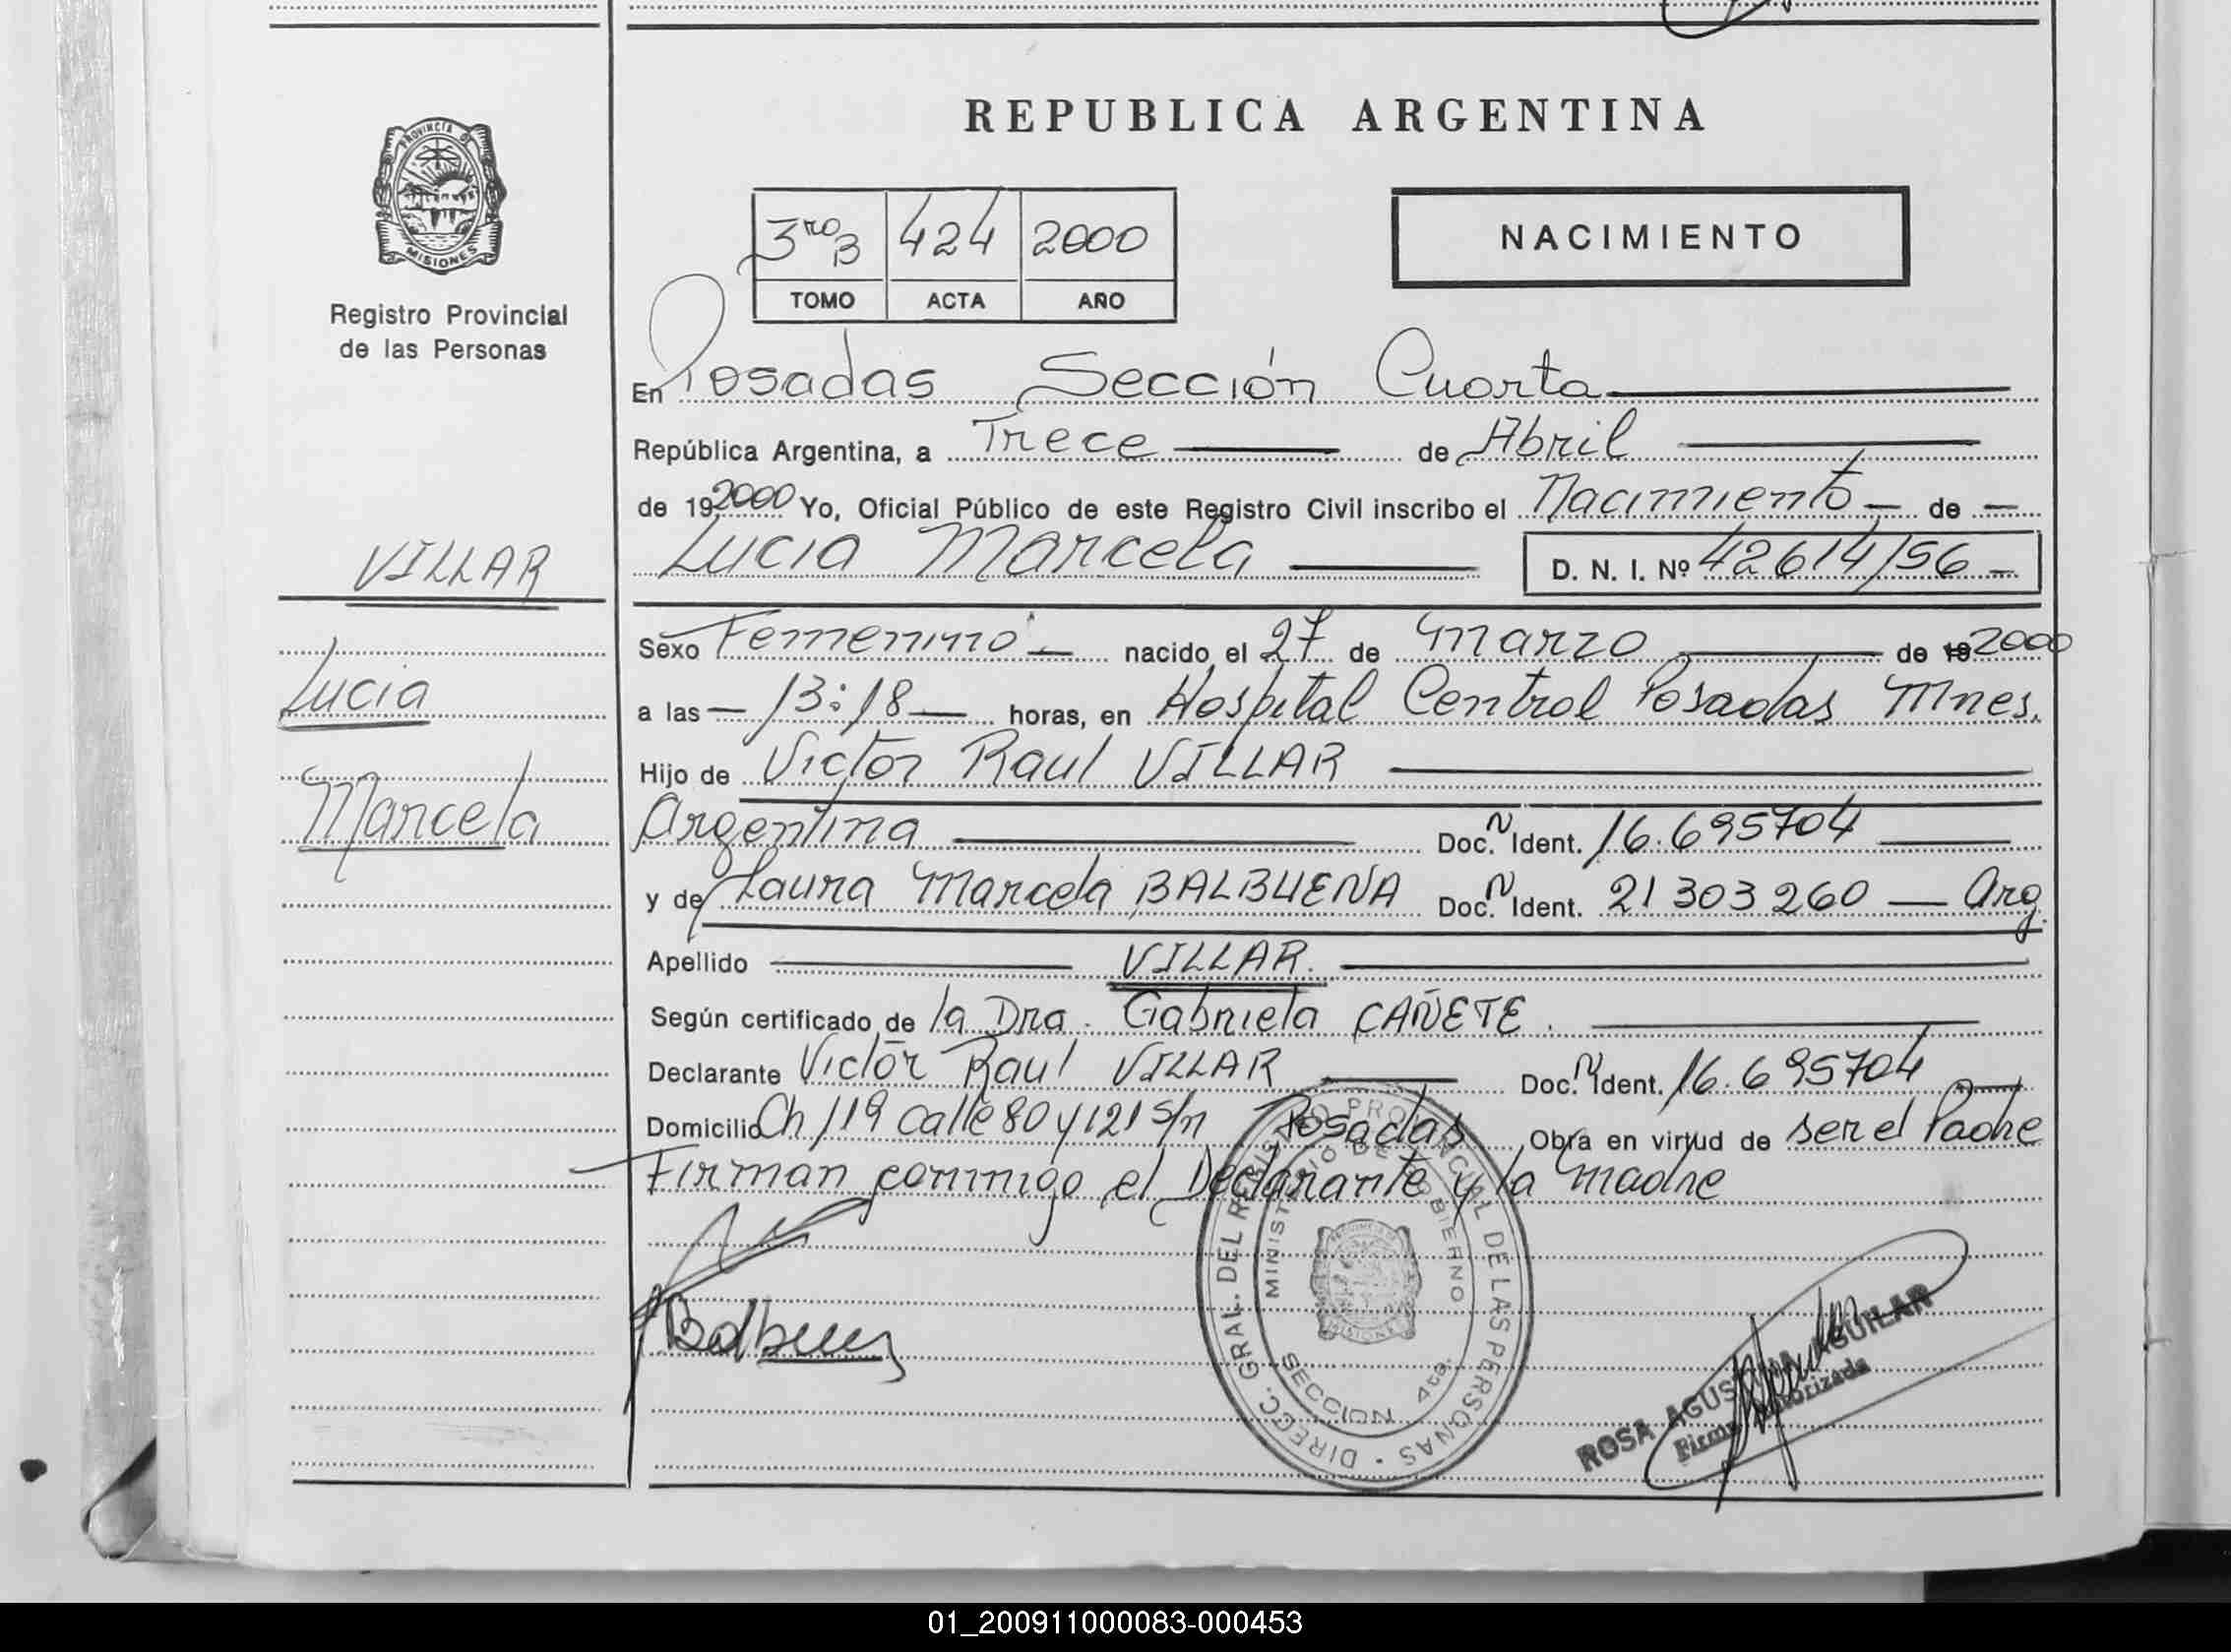 REPUBLICA ARGENTINA
PROVINCIA DE
MISIONES
Registro Provincial
de las Personas
3ro B 424 2000
TOMO ACTA AÑO
NACIMIENTO
En Posadas Sección Cuarta
República Argentina, a Trece de Abril
de 192000 Yo, Oficial Público de este Registro Civil inscribo el Nacimiento de
Lucia Marcela D. N. I. Nº 42614156
VILLAR
Lucia
Marcela
Sexo Femenino nacido el 27 de marzo de 192000
a las 13:18 horas, en Hospital Central Posadas Mnes.
Hijo de Victor Raul VILLAR
Argentina Doc. N Ident. 16.695704
y de Laura Marcela BALBUENA Doc. N Ident. 21303260 Arg.
Apellido VILLAR.
Según certificado de la Dra. Gabriela CAÑETE.
Declarante Victor Raul VILLAR Doc. N Ident. 16.695704
Domicilio Ch 119 calle 80 y 121 s/n Posadas Obra en virtud de ser el Padre
Firman conmigo el Declarante y la madre
DIRECC. GRAL. DEL REGISTRO PROVINCIAL DE LAS PERSONAS
MINISTERIO DE GOBIERNO
MISIONES
SECCION 4ta.
Balbuena
ROSA AGUSTINA AGUILAR
Firma Autorizada
01_200911000083-000453